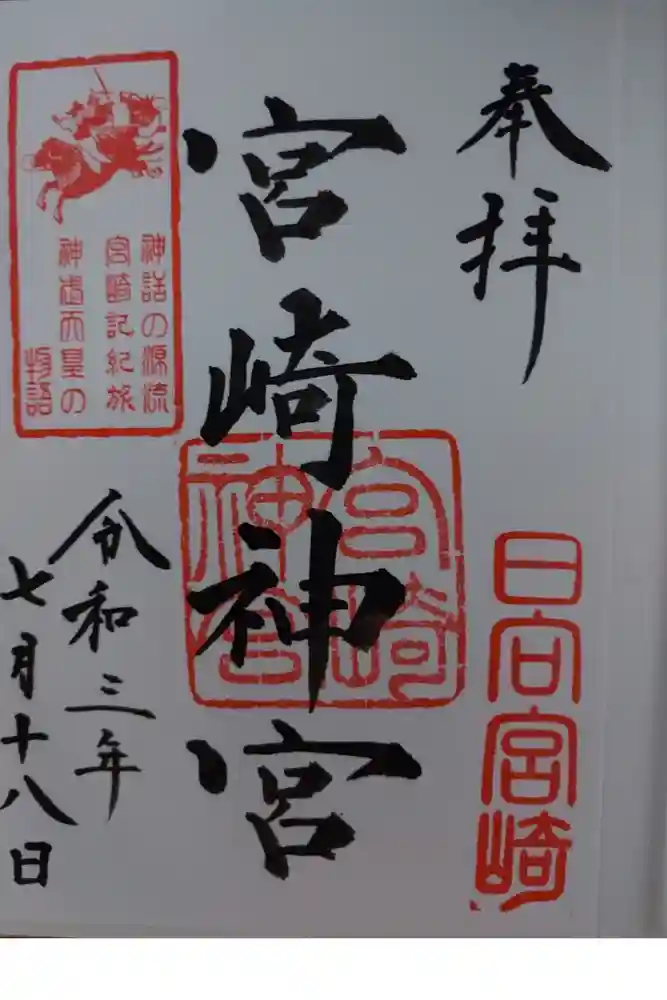 奉拝
日向宮崎
宮崎神宮
宮崎
神宮
神話の源流
宮崎記紀旅
神武天皇の
物語
令和三年
七月十八日